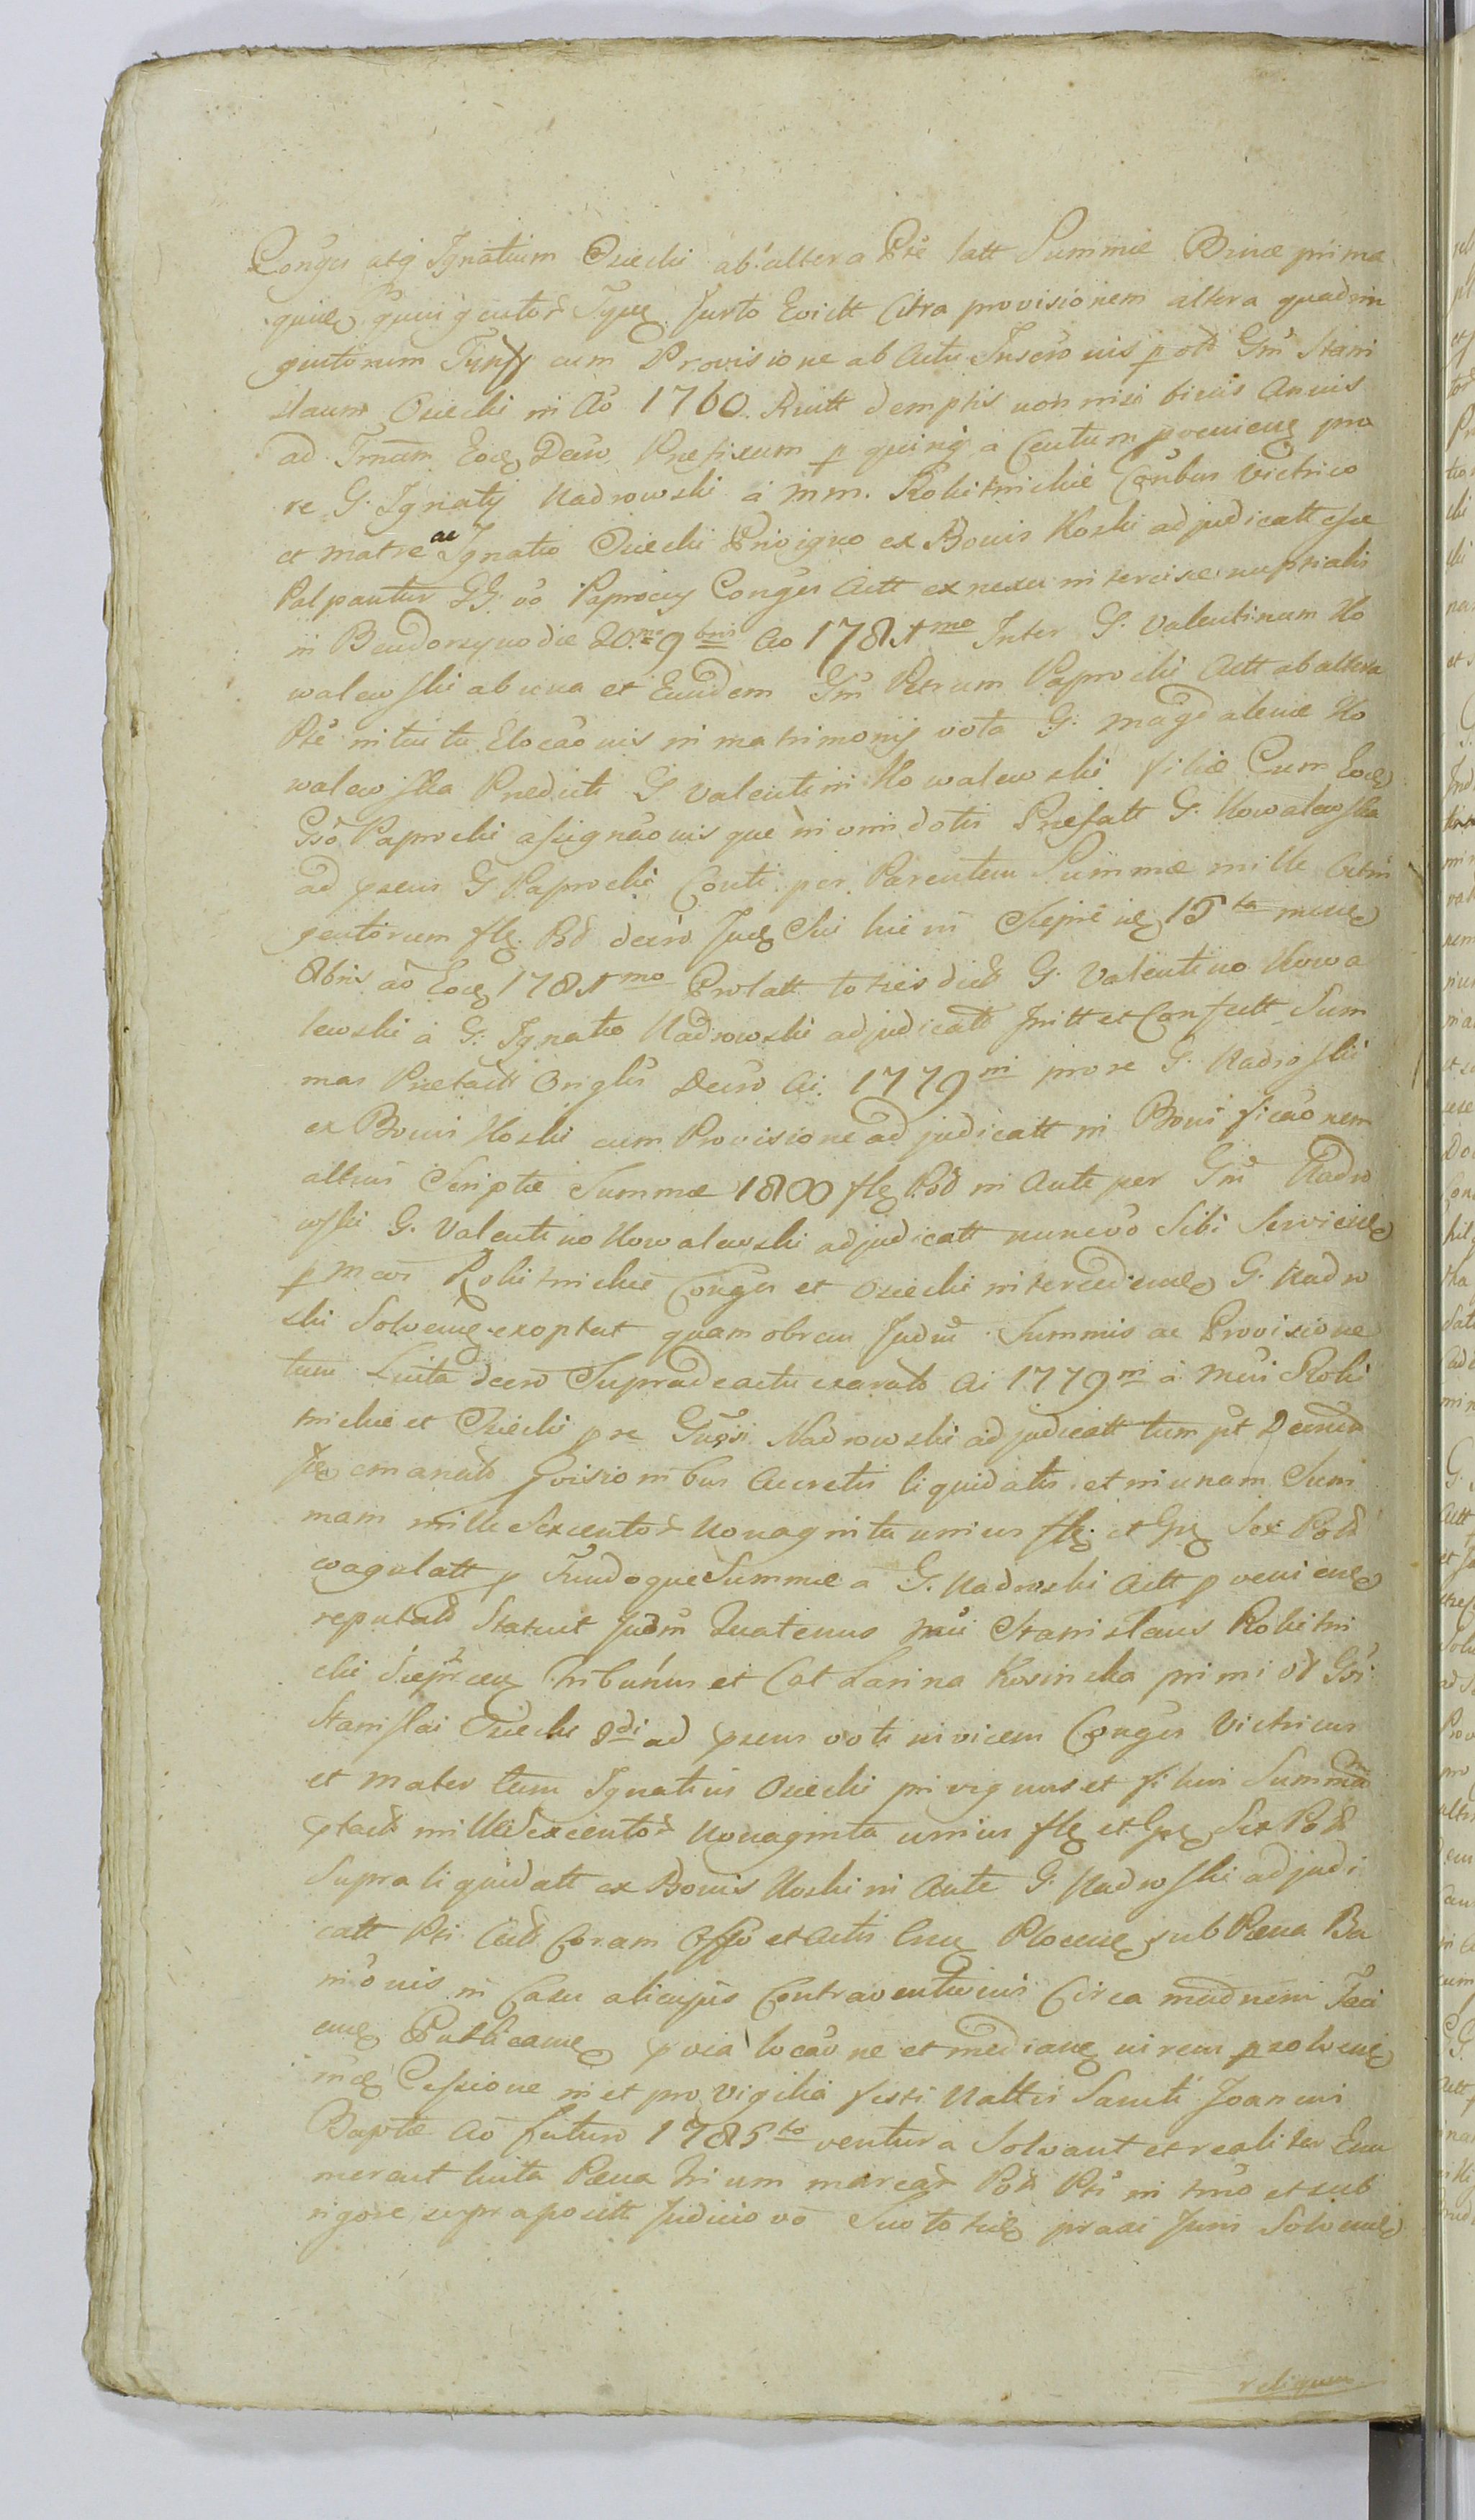 Conges atq Ignatium Osiecki ab altera Pte latt Summæ Binæ prima
quinq quingentor Tynf Jurto Evictt Citra provisionem altera quadrin
gentorum Tynff cum Provisione ab Actu Inscronis p olt Gm Stani
slaum Osiecki in Ao 1760. Ruitt demptis non nisi binis Annis
ad Tmam Eoq Decro Prefixum p quinq a Centum proveniens pro
re G. Ignatij Nadrowski a MM. Rokitnickie Conbus Victrico
et matre ac Ignatio Osiecki Privigno ex Bonis Koski adjudicatt esse
Palpantur GG. vo Paprocy Conges Actt ex nexu intercisæ nuptialis
in Bendorzyno die 20ma 9bris Ao 1781mo Inter G. Valentinum Ko
walewski ab una et Eundem Gm Petrum Paprocki Actt ab altera
Pte intuitu Elocaonis in matrimonij vota G. Magdalenæ Ko
walewska Predicti G Valentini Kowalewski filiæ Cum Eoq
Gso Paprocki assignaonis que in vim dotis Prefatt G. Kowalewska
ad prens G Paprocki Conti per Parentem Summæ mille octin
gentorum fl Pol decro Jud Sui hic in Sieprc 15ta mens
Obris ao Eoq 1781mo Prolatt toties dict G. Valentino Kowa
lewski a G. Ignatio Nadrowski adjudicatt Initt et Confectt Sum
mas Pretactt Origlis Decro Ai. 1779ni pro re G. Nadroski
ex Bonis Koski cum Provisione adjudicatt in Bonificaonem
altius Scriptæ Summæ 1800 fl Pol in Ante per Gm Nadro
wski G. Valentino Kowalewski adjudicatt nunc vo Sibi Serviens
p Mcos Rokitnickie Conges et Osiecki intercedente G. Nadro
ski Solvens exoptat quam obrem Judm Summis ac Provisione
tum Luita decro Supra de actu exarato Ai 1779ni a Mcis Roki
tnickie et Osiecki p re Gnosi Nadrowski adjudicatt tum pt Decrum
emanato Pvisionibus Accretis liquidatis et in unam Sum
mam mille Sexcentor Nonaginta unius fl et Gr Sex Pol
coagulatt p Fundoque Summæ a G. Nadowski Actt p venienс
reputato Statuit Judm Quatenus Mci Stanislaus Rokitni
cki Sieprcen Tribunus et Catharina Kosinska primi olt Gsi
Stanislai Osiecki 2di ad prens voti invicem Conges Victricus
et Mater tum Ignatius Osiecki privignus et filius Summam
ptact mille Sexcentor Nonaginta unius fl et Gr Sex Pol
Supra liquidatt ex Bonis Koski in Ante G. Nadroski adjudi
catt Pti Actt Coram Offo et Actis Cas Plocens sub Pæna Ba
nionis in Casu alicujus Contraventionis Circa mednem Faci
ens Publicans pvia locaone et mediane virem psolvens
Cessione in et pro Vigilia festi Nattis Sancti Joannis
Baptæ Ao futuro 1785to ventura Solvant et realiter Enu
merent luita Pæna trium marcar Pol Pti in tmo et sub
rigore supra positt Judicio vo Suo toties praxi Juris Solvens
reliquum